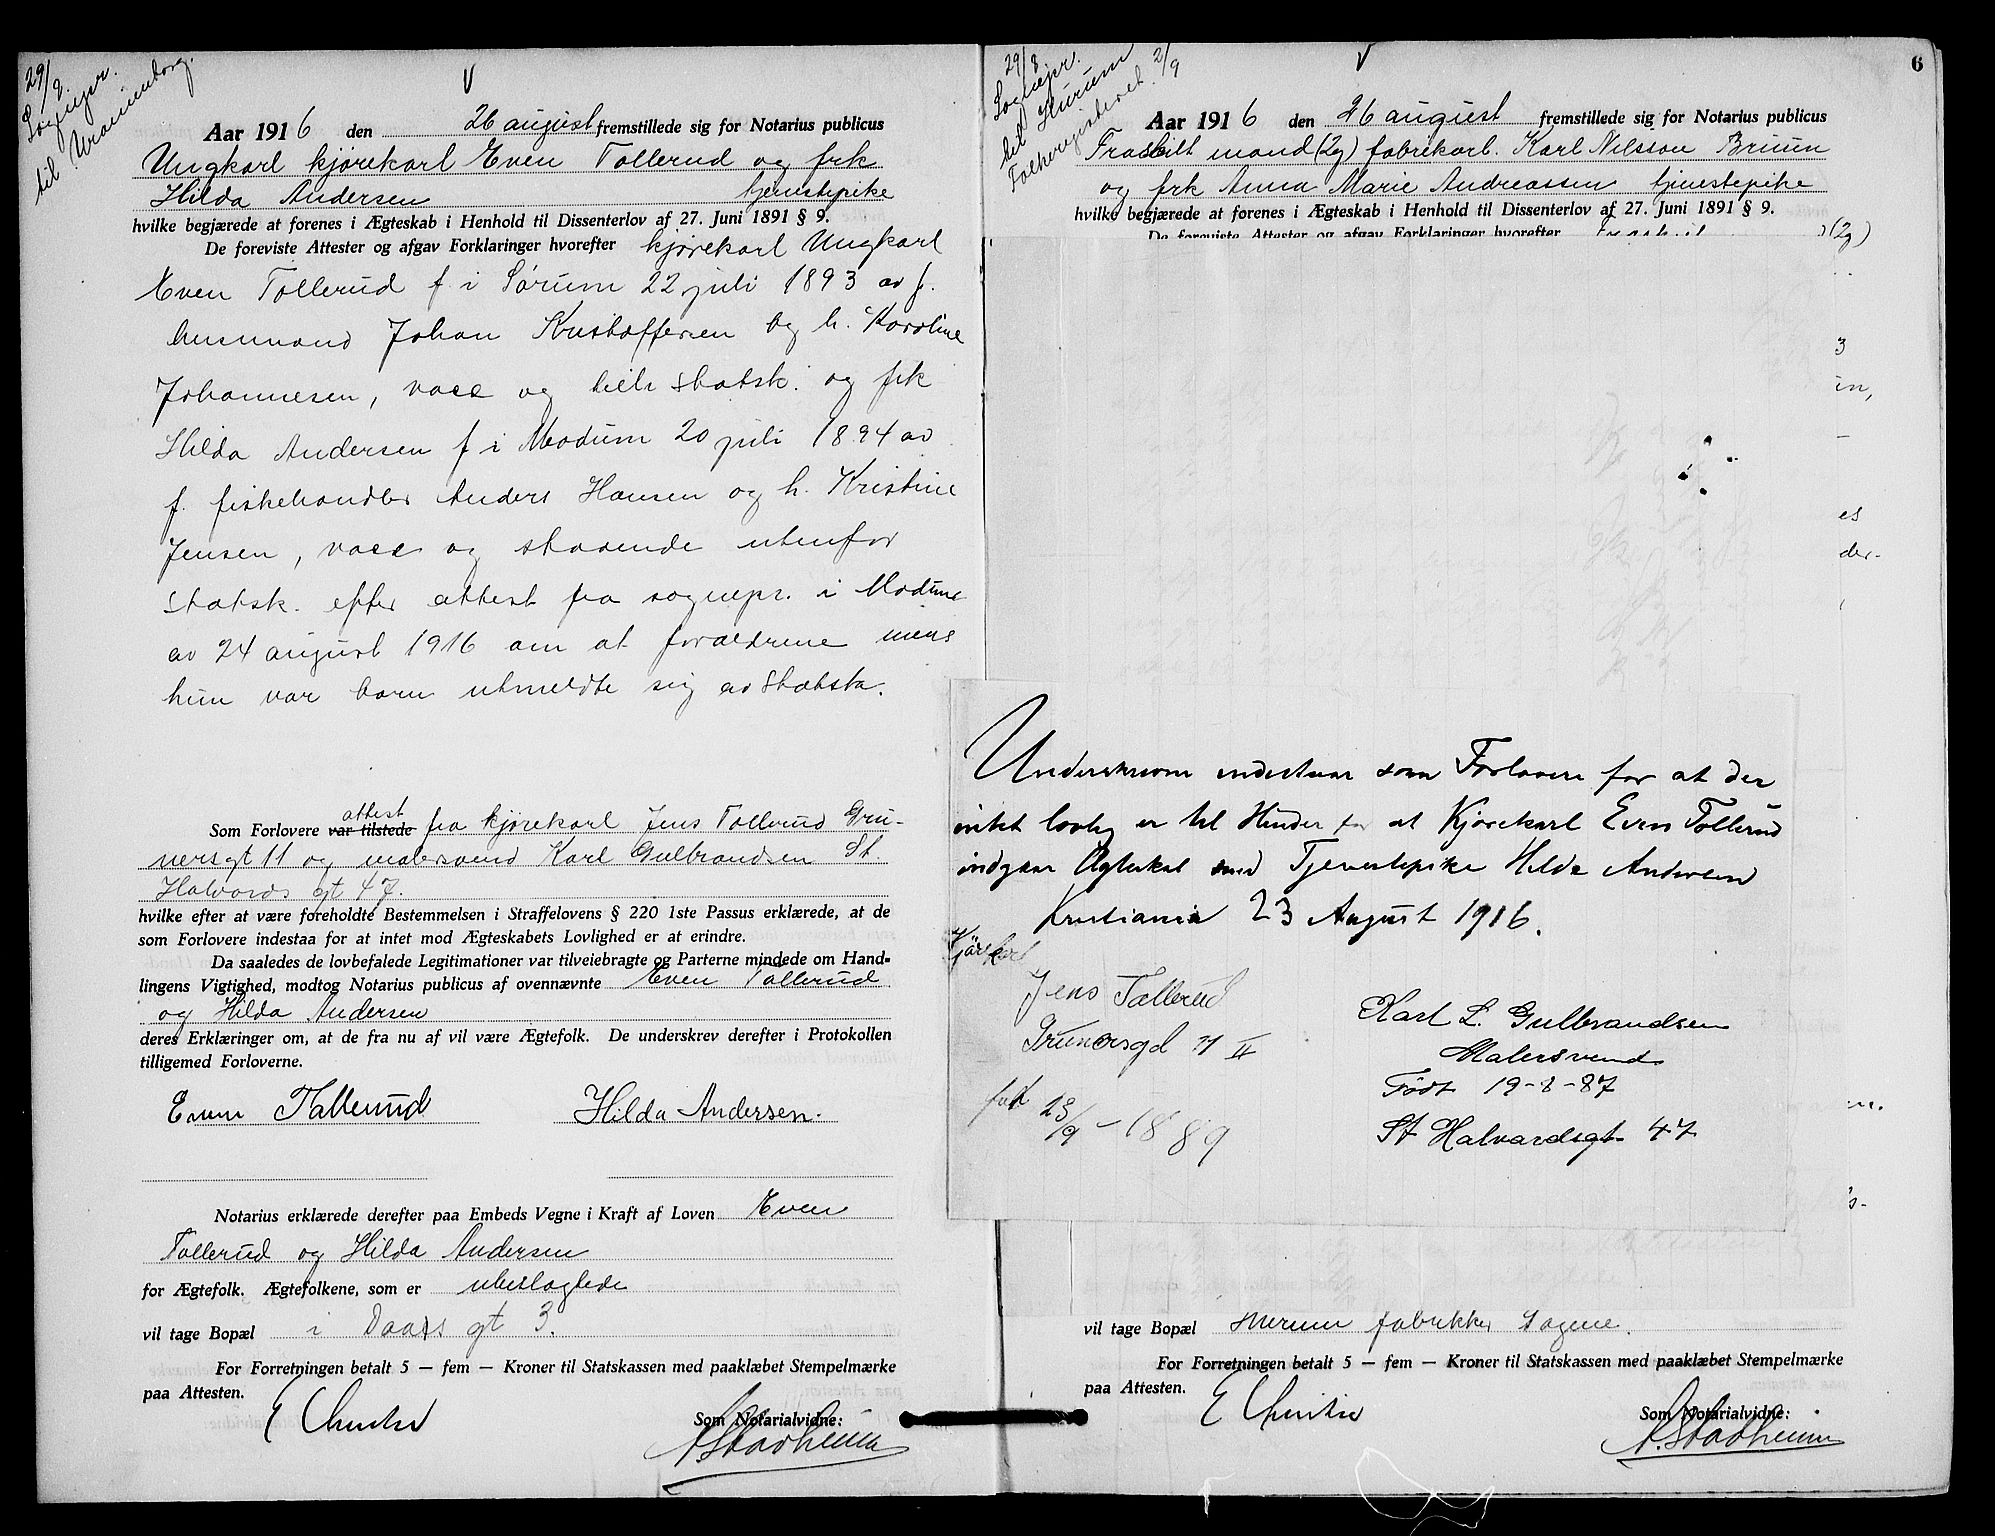 29/8.
Sognepr.
til Uranienborg.
V
Aar 1916 den 26 august fremstillede sig for Notarius publicus
Ungkarl kjørekarl Even Tollerud og frk
Hilda Andersen tjenestepike
hvilke begjærede at forenes i Ægteskab i Henhold til Dissenterlov af 27. Juni 1891 § 9.
De foreviste Attester og afgav Forklaringer hvorefter kjørekarl Ungkarl
Even Tollerud f. i Sørum 22 juli 1893 av f.
husmand Johan Kristoffersen og h. Karoline
Johannesen, vacc og tilh. statsk. og frk
Hilda Andersen f i Modum 20 juli 1894 av
f. fiskehandler Anders Hansen og h. Kristine
Jensen, vacc og staaende utenfor
statsk. efter attest fra sognepr. i Modum
av 24 august 1916 om at forældrene mens
hun var barn utmeldte sig av Statsk.
attest
Som Forlovere var tilstede fra kjørekarl Jens Tollerud Gru-
nersgt 11 og malersvend Karl Gulbrandsen St.
Halvards gt 47.
hvilke efter at være foreholdte Bestemmelsen i Straffelovens § 220 1ste Passus erklærede, at de
som Forlovere indestaa for at intet mod Ægteskabets Lovlighed er at erindre.
Da saaledes de lovbefalede Legitimationer var tilveiebragte og Parterne mindede om Hand-
lingens Vigtighed, modtog Notarius publicus af ovennævnte Even Tollerud
og Hilda Andersen
deres Erklæringer om, at de fra nu af vil være Ægtefolk. De underskrev derefter i Protokollen
tilligemed Forloverne.
Even Tallerud Hilda Andersen.
Notarius erklærede derefter paa Embeds Vegne i Kraft af Loven Even
Tollerud og Hilda Andersen
for Ægtefolk. Ægtefolkene, som er ubeslægtede
vil tage Bopæl i Daas gt 3.
For Forretningen betalt 5 — fem — Kroner til Statskassen med paaklæbet Stempelmærke
paa Attesten.
E Christie
Som Notarialvidne:
A Stadheim
29/8.
Sognepr.
til Hurum
Folkeregisteret 2/9
V
6
Aar 1916 den 26 august fremstillede sig for Notarius publicus
Fraskilt mand (2g) fabrikarb. Karl Nilsson Bruun
og frk Anna Marie Andreassen tjenestepike
hvilke begjærede at forenes i Ægteskab i Henhold til Dissenterlov af 27. Juni 1891 § 9.
De foreviste Attester og afgav Forklaringer hvorefter (2g)
3
in,
es
der-
Underskrevne indestaar som Forlovere for at der
intet lovlig er til Hinder for at Kjørekarl Even Tollerud
indgaar Ægteskab med Tjenestepike Hilda Andersen
Kristiania 23 August 1916.
Kjørekarl
Jens Tallerud
Grunersgd 11 II
født 23/9 - 1889
Karl L. Gulbrandsen
Malersvend
Födt 19-8-87
St Halvardsgt 47
m.
s-
vil tage Bopæl fabrikker Sagene.
For Forretningen betalt 5 — fem — Kroner til Statskassen med paaklæbet Stempelmærke
paa Attesten.
E Christie
Som Notarialvidne:
A. Stadheim